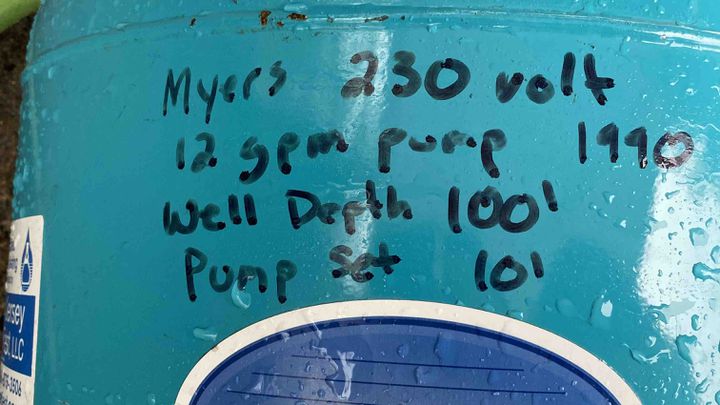 Myers 230 volt
12 gpm pump 1990
Well Depth 100'
Pump Set 101
ersey
est, LLC